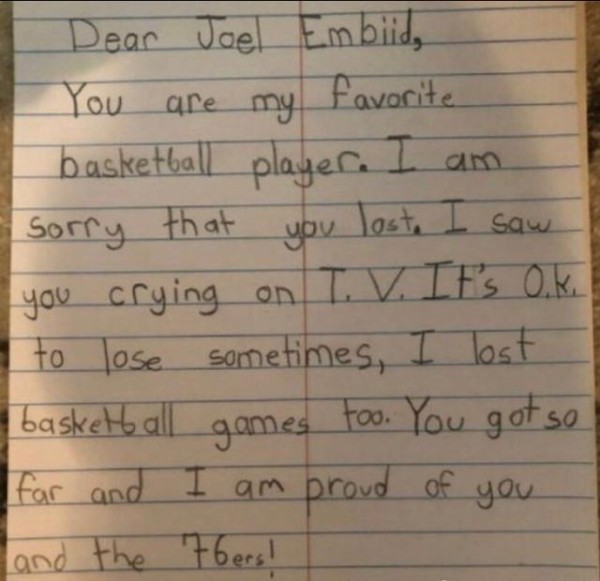 Dear Joel Embiid,
You are my favorite
basketball player. I am
sorry that you lost. I saw
you crying on T.V. It's O.k.
to lose sometimes, I lost
basketball games too. You got so
far and I am proud of you
and the 76ers!